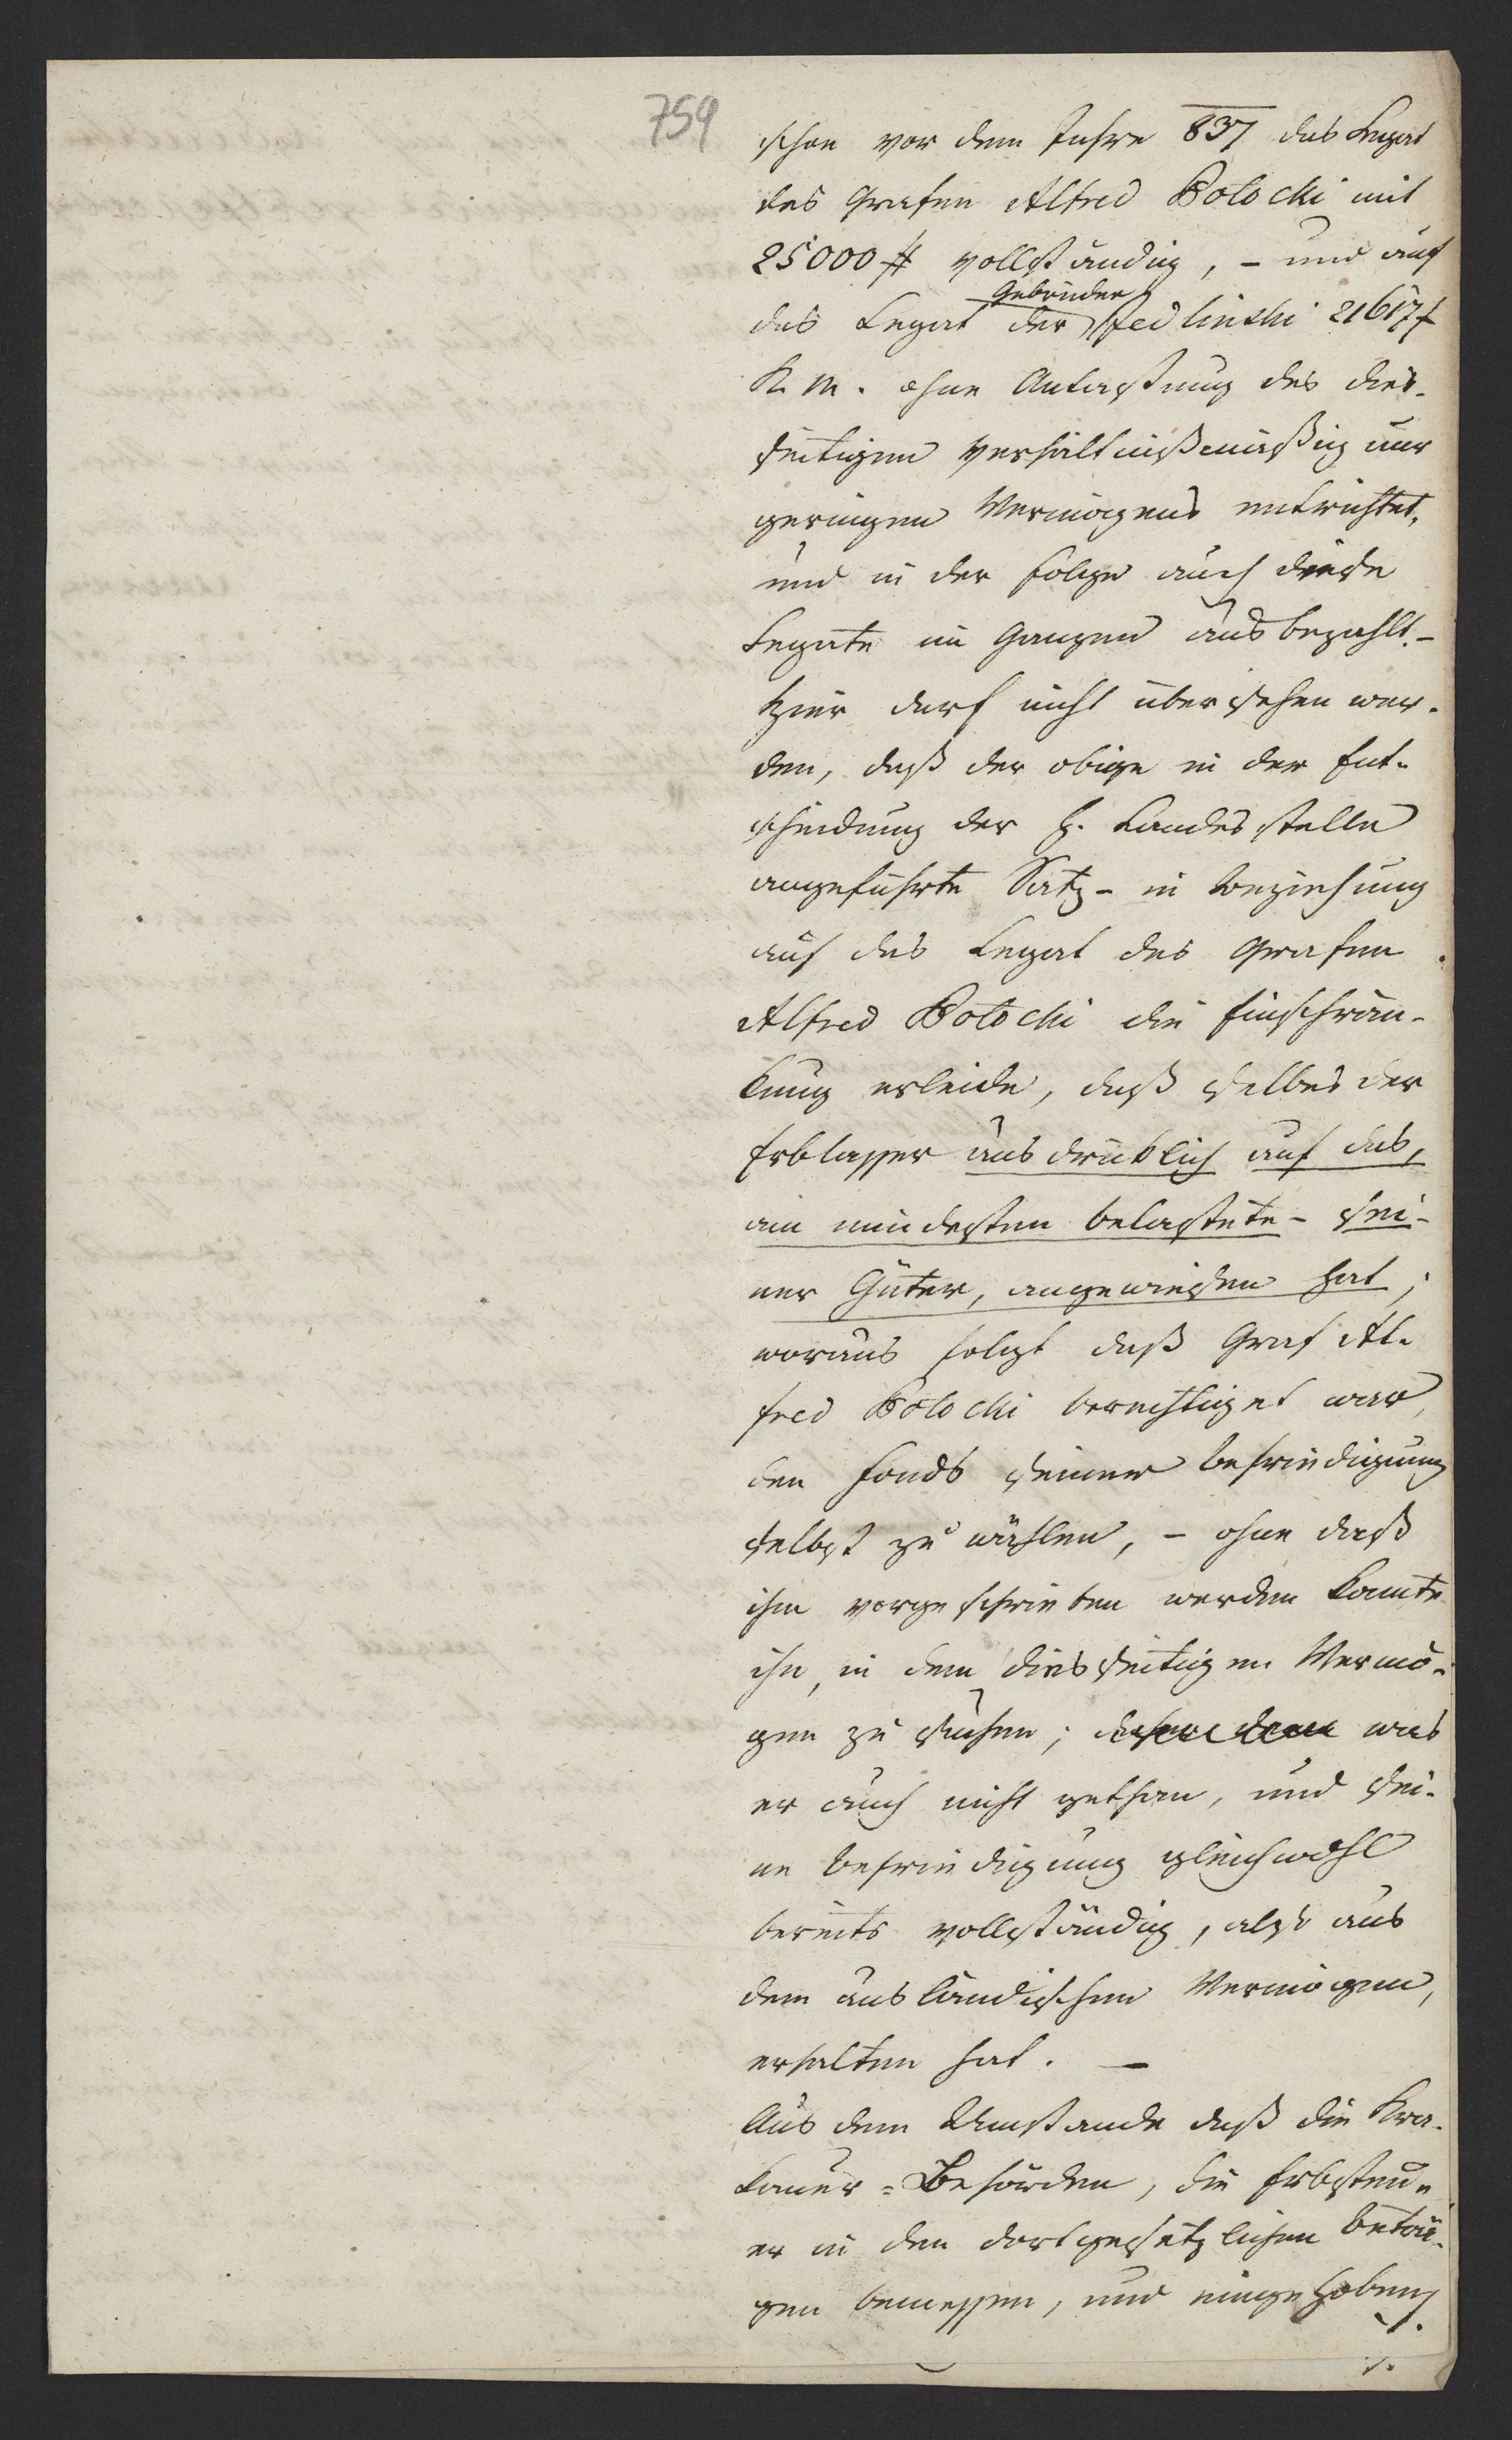 759
schon vor dem Jahre 837 das Legat
des Grafen Alfred Potocki mit
25000 # vollständig, - und auf
Gebrüder
das Legat der Jedlinski 21617 f
K. M. ohne Antastung des dies-
seitigen verhältnißmäßig nur
geringen Vermögens entrichtet,
und in der Folge auch diese
Legate im Ganzen ausbezahlt. -
Hier darf nicht übersehen wer-
den, daß der obige in der Ent-
scheidung der h. Landesstelle
angeführte Satz - in Beziehung
auf das Legat des Grafen
Alfred Potocki die Einschrän-
kung erleide, daß selbes der
Erblasser ausdrüklich auf das,
am mindesten belastete - sei-
ner Güter, angewiesen hat;
woraus folgt daß Graf Al-
fred Potocki berechtiget war,
den Fonds seiner Befriedigung
selbst zu wählen, - ohne daß
ihm vorgeschrieben werden konnte
ihn, in dem diesseitigen Vermö-
gen zu suchen; was
er auch nicht gethan, und sei-
ne Befriedigung gleichwohl
bereits vollständig, also aus
dem ausländischen Vermögen,
erhalten hat. -
Aus dem Umstande daß die Kra-
kauer-Behörden, die Erbsteu-
er in den dortgesetzlichen Beträ-
gen bemessen, und eingehoben
./.